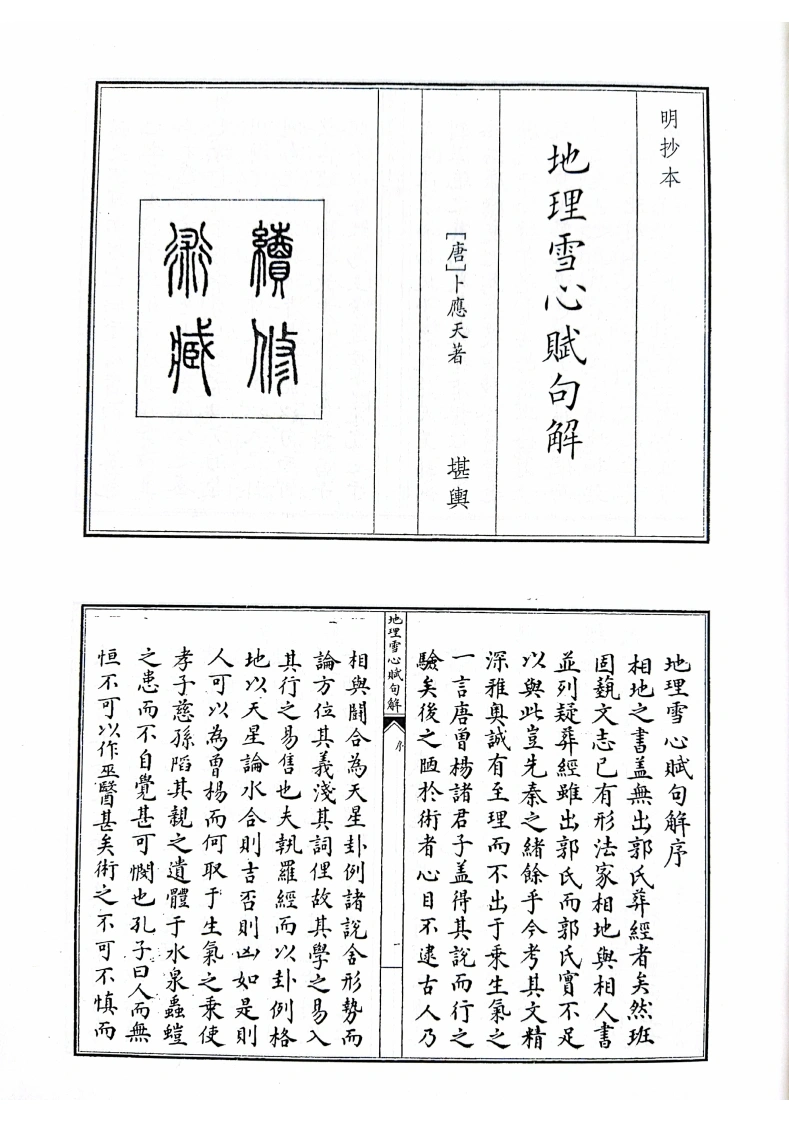 明抄本
地理雪心賦句解
［唐］卜應天著
堪輿
續修
術藏
地理雪心賦句解序
相地之書蓋無出郭氏葬經者矣然班
固藝文志已有形法家相地與相人書
並列疑葬經雖出郭氏而郭氏實不足
以與此豈先秦之緒餘乎今考其文精
深雅奥誠有至理而不出于乘生氣之
一言唐曾楊諸君子盖得其説而行之
驗矣後之陋於術者心目不逮古人乃
地理雪心賦句解
序
一
相與闘合為天星卦例諸說舍形勢而
論方位其義淺其詞俚故其學之易入
其行之易售也夫執羅經而以卦例格
地以天星論水合則吉否則凶如是則
人可以為曾楊而何取于生氣之乘使
孝子慈孫陷其親之遺體于水泉蟲螘
之患而不自覺甚可憫也孔子曰人而無
恒不可以作巫醫甚矣術之不可不慎而